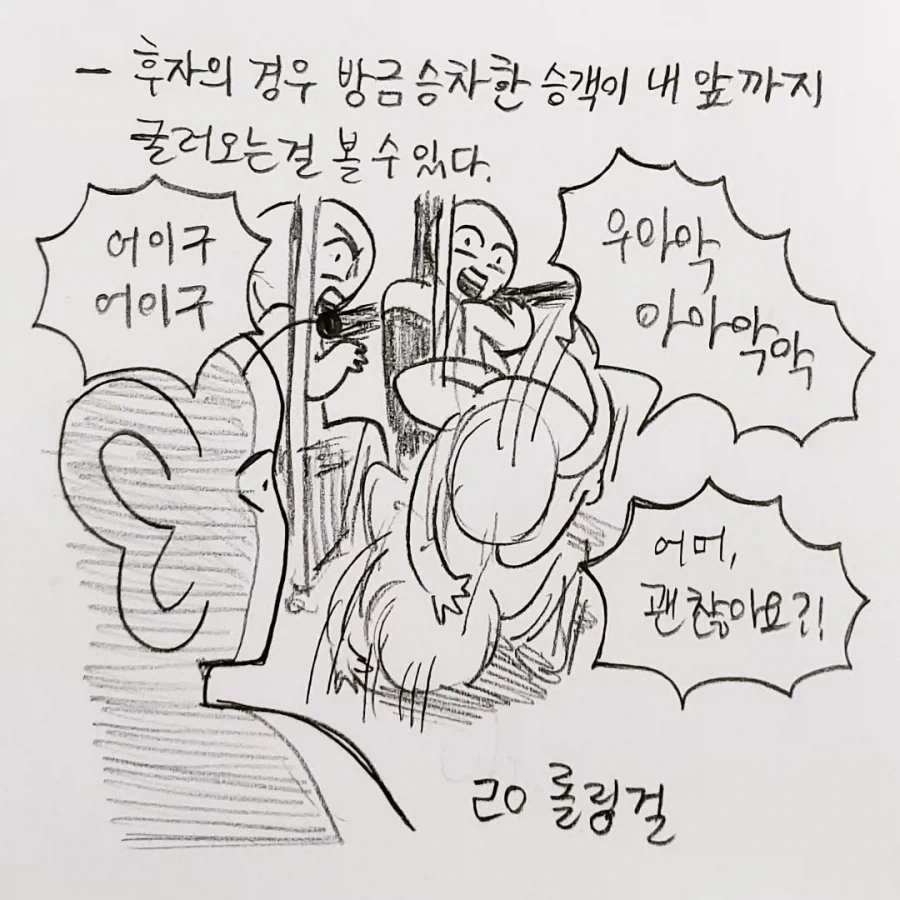 - 후자의 경우 방금승차한 승객이 내 앞까지
굴러오는걸 볼 수 있다.
어이구
어이구
우아악
아아악악
어머,
괜찮아요?!
ㄹㅇ 롤링걸